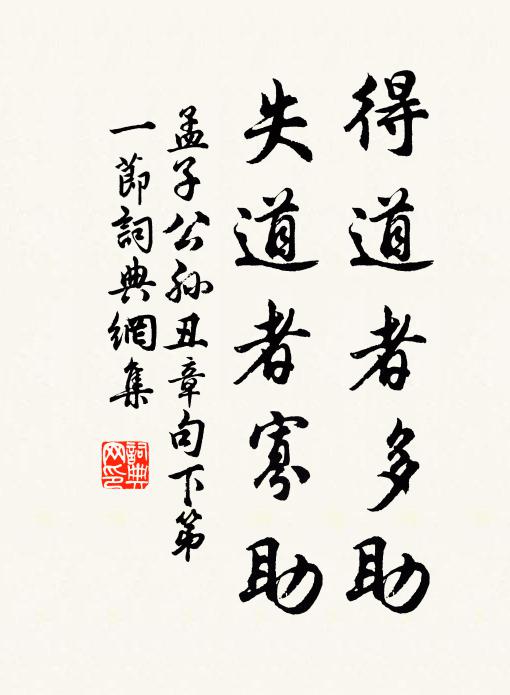 得道者多助
失道者寡助
孟子公孫丑章句下第
一節詞典網集
詞典網印